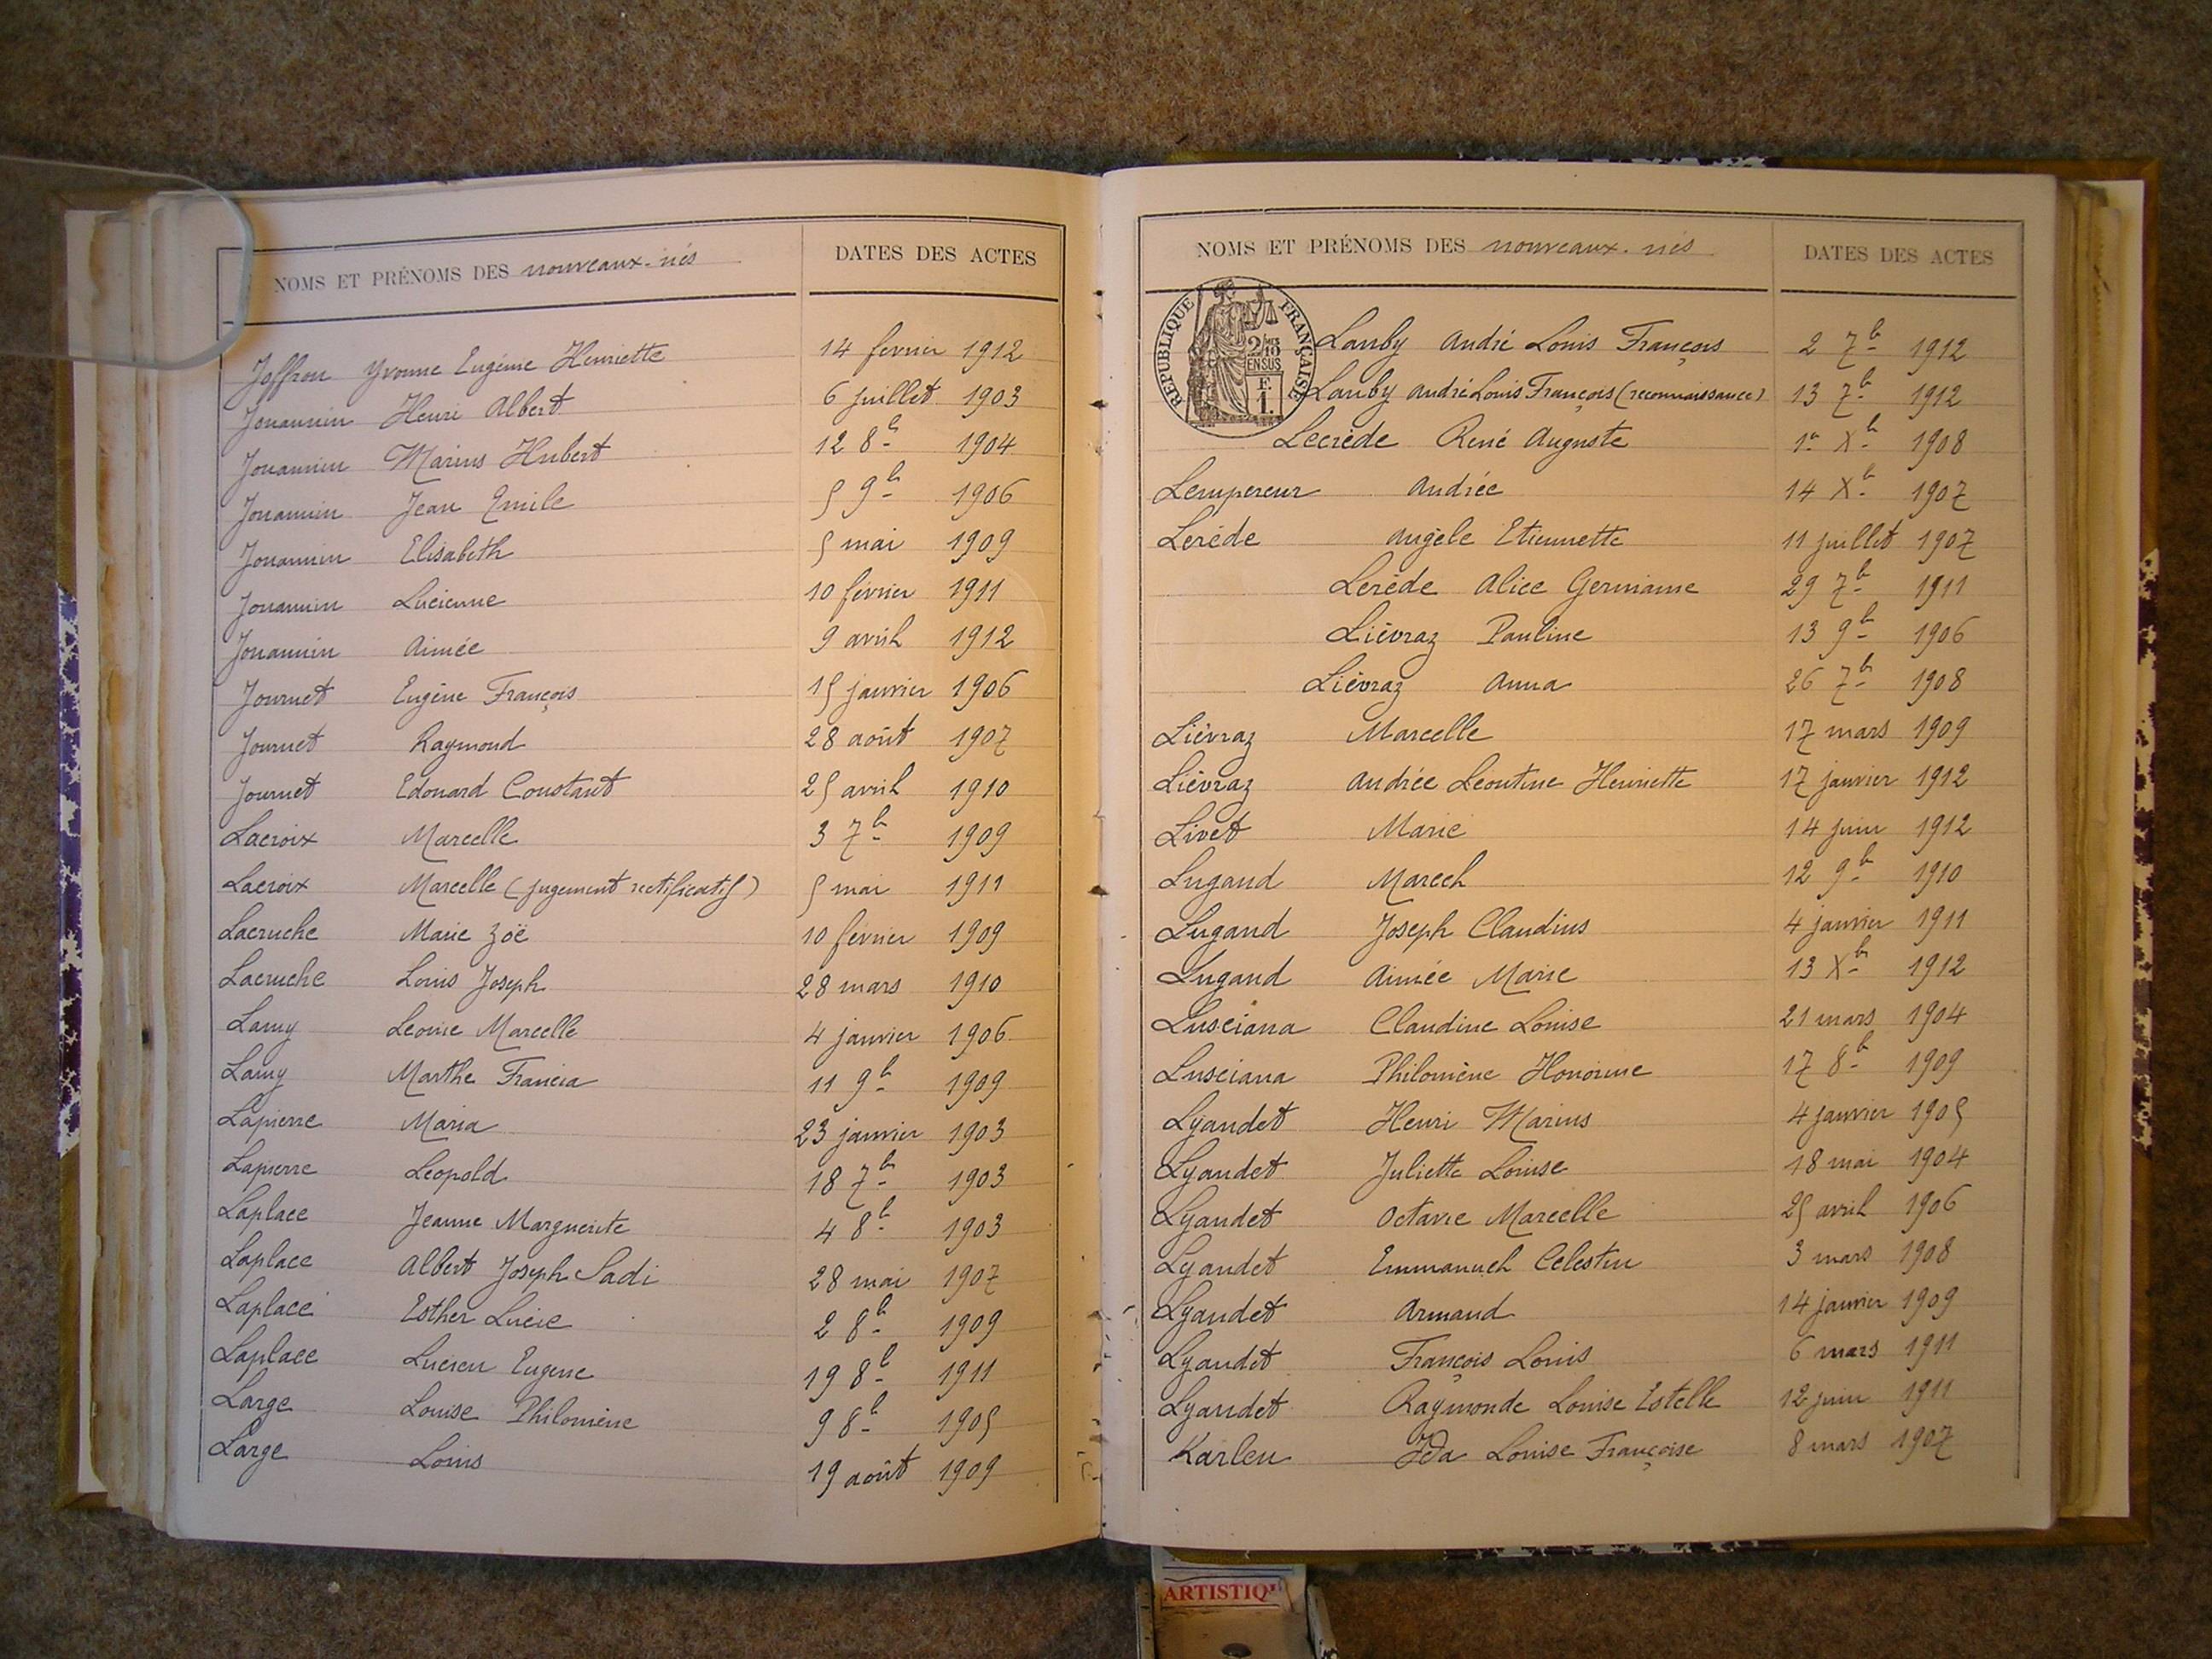 NOMS ET PRÉNOMS DES nouveaux-nés DATES DES ACTES
Joffron Yvonne Eugénie Henriette 14 février 1912
Jouannin Henri Albert 6 juillet 1903
Jouannin Marius Hubert 12 8b 1904
Jouannin Jean Emile 5 9b 1906
Jouannin Elisabeth 5 mai 1909
Jouannin Lucienne 10 février 1911
Jouannin Aimée 9 avril 1912
Journet Eugène François 15 janvier 1906
Journet Raymond 28 août 1907
Journet Edouard Constant 25 avril 1910
Lacroix Marcelle 3 7b 1909
Lacroix Marcelle (jugement rectificatif) 5 mai 1911
Lacruche Marie Zoë 10 février 1909
Lacruche Louis Joseph 28 mars 1910
Lamy Leonie Marcelle 4 janvier 1906
Lamy Marthe Francia 11 9b 1909
Lapierre Maria 23 janvier 1903
Lapierre Leopold 18 7b 1903
Laplace Jeanne Marguerite 4 8b 1903
Laplace Albert Joseph Sadi 28 mai 1907
Laplace Esther Lucie 2 8b 1909
Laplace Lucien Eugene 19 8b 1911
Large Louise Philomène 9 8b 1905
Large Louis 19 août 1909
NOMS ET PRÉNOMS DES nouveaux-nés DATES DES ACTES
RÉPUBLIQUE FRANÇAISE
2/10 MES
EN SUS
F.
1.
Lauby André Louis François 2 7b 1912
Lauby André Louis François (reconnaissance) 13 7b 1912
Lecrède René Auguste 1er Xb 1908
Lempereur Andrée 14 Xb 1907
Lerède Angèle Etiennette 11 juillet 1907
Lerède Alice Germaine 29 7b 1911
Lièvraz Pauline 13 9b 1906
Lièvraz Anna 26 7b 1908
Lièvraz Marcelle 17 mars 1909
Lièvraz Andrée Leontine Henriette 17 janvier 1912
Livet Marie 14 juin 1912
Lugand Marcel 12 9b 1910
Lugand Joseph Claudius 4 janvier 1911
Lugand Aimée Marie 13 Xb 1912
Lusciana Claudine Louise 21 mars 1904
Lusciana Philomène Honorine 17 8b 1909
Lyaudet Henri Marius 4 janvier 1905
Lyaudet Juliette Louise 18 mai 1904
Lyaudet Octavie Marcelle 25 avril 1906
Lyaudet Emmanuel Celestin 3 mars 1908
Lyaudet Armand 14 janvier 1909
Lyaudet François Louis 6 mars 1911
Lyaudet Raymonde Louise Estelle 12 juin 1911
Karlen Ida Louise Françoise 8 mars 1907
ARTISTIQ